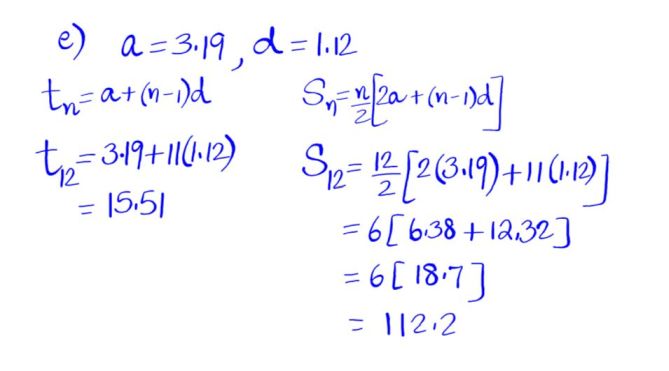 e) a = 3.19, d = 1.12
tₙ = a + (n-1)d
t₁₂ = 3.19 + 11(1.12)
= 15.51
Sₙ = n/2 [2a + (n-1)d]
S₁₂ = 12/2 [2(3.19) + 11(1.12)]
= 6 [6.38 + 12.32]
= 6 [18.7]
= 112.2